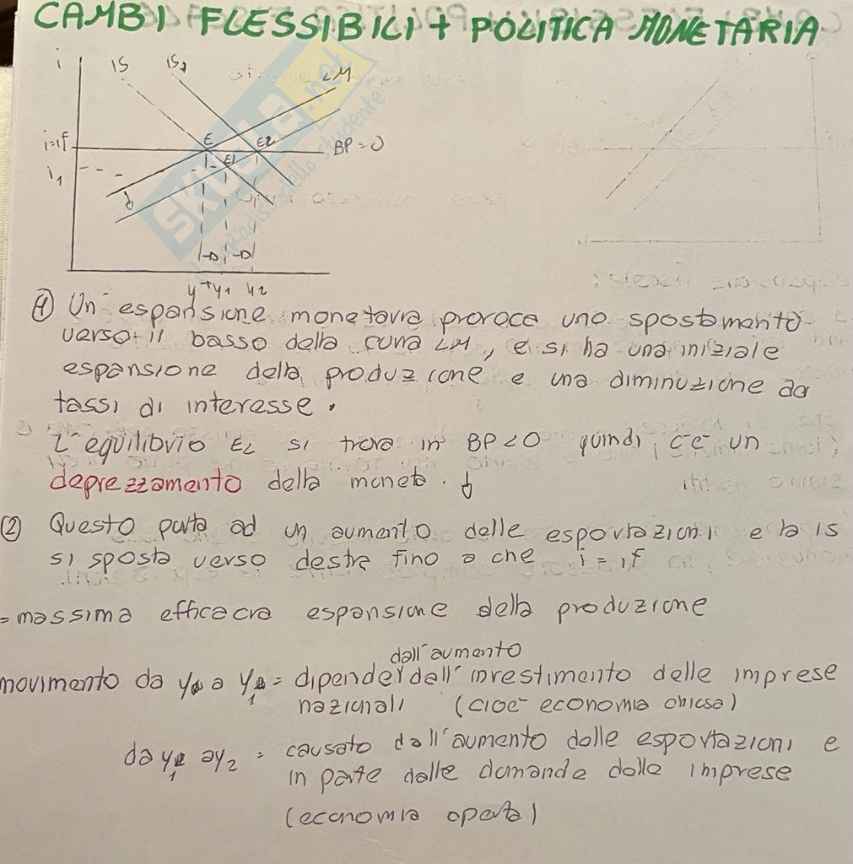 CAMBI FLESSIBILI + POLITICA MONETARIA
i IS IS1 LM
i=if E E2 BP=0
i1 E1
y* y1 y2
① Un espansione monetaria provoca uno spostamento
verso il basso della curva LM, e si ha una iniziale
espansione della produzione e una diminuzione da
tassi di interesse.
L'equilibrio E2 si trova in BP<0 quindi c'è un
deprezzamento della moneta.
② Questo porta ad un aumento delle esportazioni e la IS
si sposta verso destra fino a che i=if
= massima efficacia espansione della produzione
dall'aumento
movimento da y a y1 = dipende dall'investimento delle imprese
nazionali (cioè economia chiusa)
da y1 a y2 = causato dall'aumento delle esportazioni e
in parte dalle domande delle imprese
(economia aperta)
skuola.net